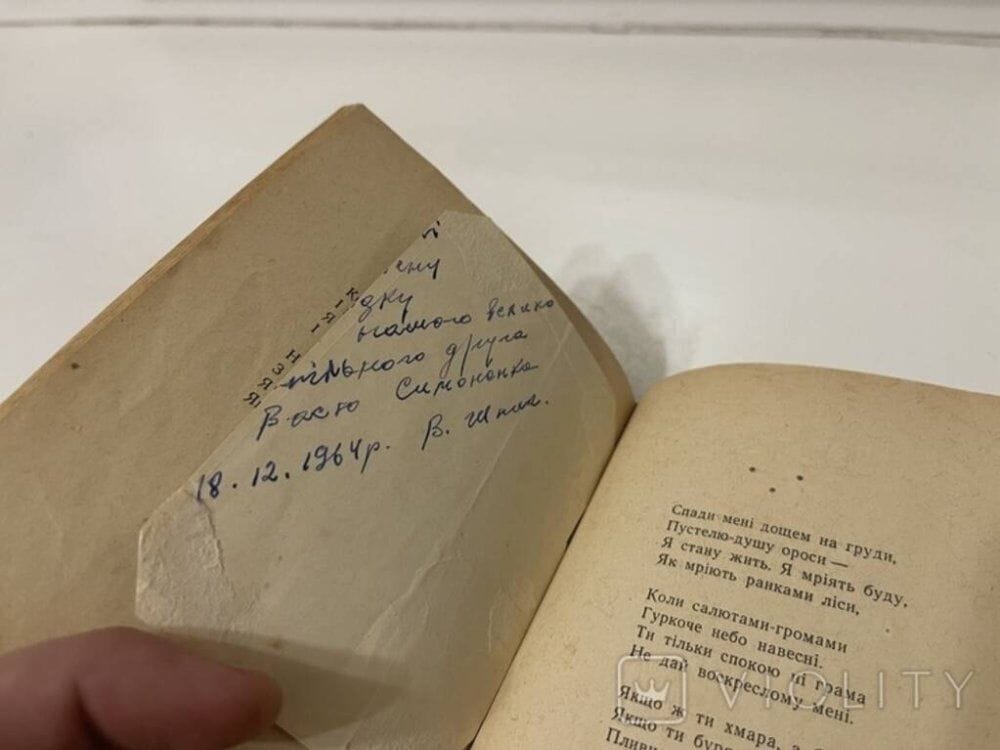 нашого велико
дпільного друга
Васю Симоненка
18.12.1964р. В. Шпак.
Спади мені дощем на груди,
Пустелю-душу ороси —
Я стану жить. Я мріять буду,
Як мріють ранками ліси,
Коли салютами-громами
Гуркоче небо навесні.
Ти тільки спокою ні грама
Не дай воскреслому мені.
Якщо ж ти хмара, з
Якщо ти
VIOLITY